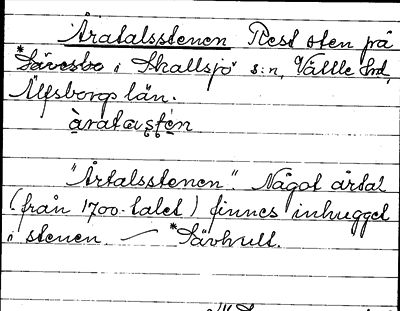 Åratalsstenen Rest sten på
*Sävesbo i Skallsjö s:n, Vättle hrd,
Älfsborgs län.
àratalstén
"Årtalsstenen". Något årtal
(från 1700-talet) finnes inhugget
i stenen. — *Sävhult.